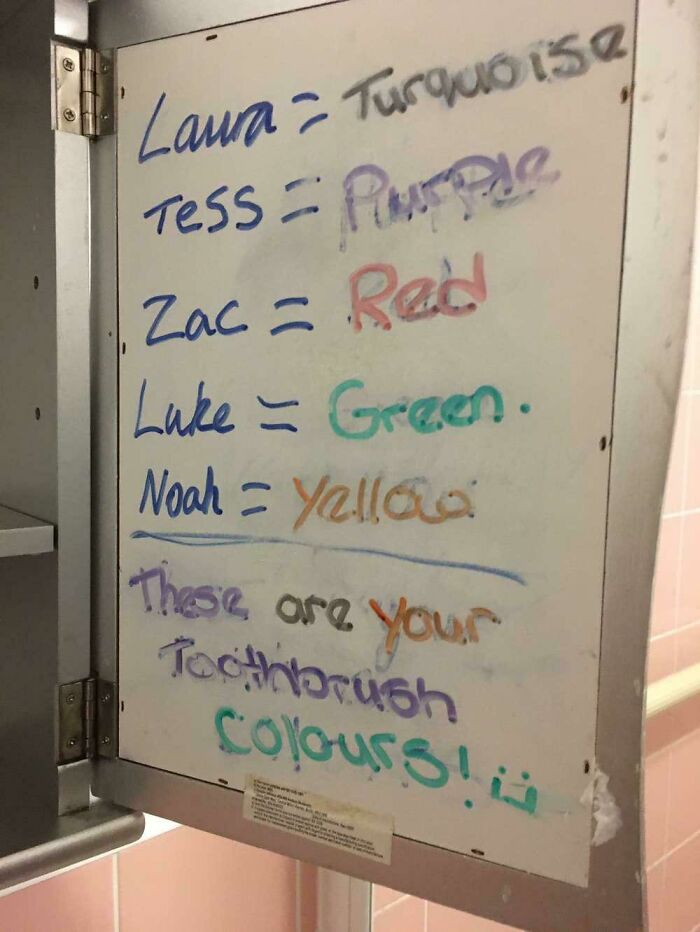 Laura = Turquoise
Tess = Purple
Zac = Red
Luke = Green.
Noah = Yellow
These are your
Toothbrush
Colours! :)